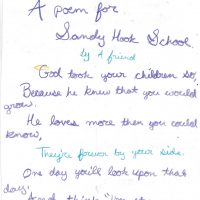 A poem for
Sandy Hook School.
by A friend
God took your children so,
Because he knew that you would
grow.
He loves more then you could
know,
They're forever by your side.
One day you'll look upon that
day,
And think